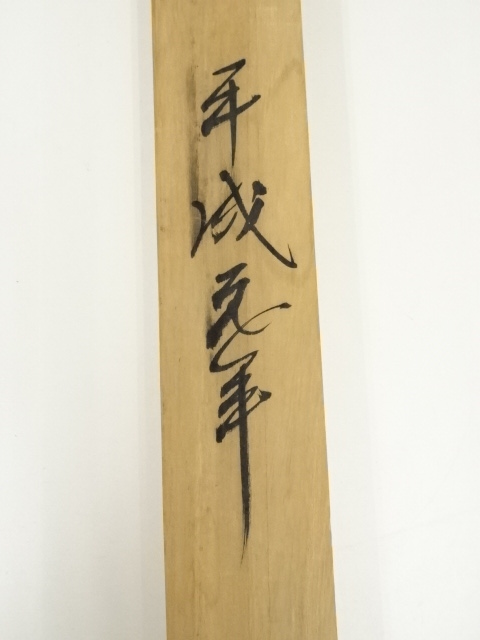 平成元年